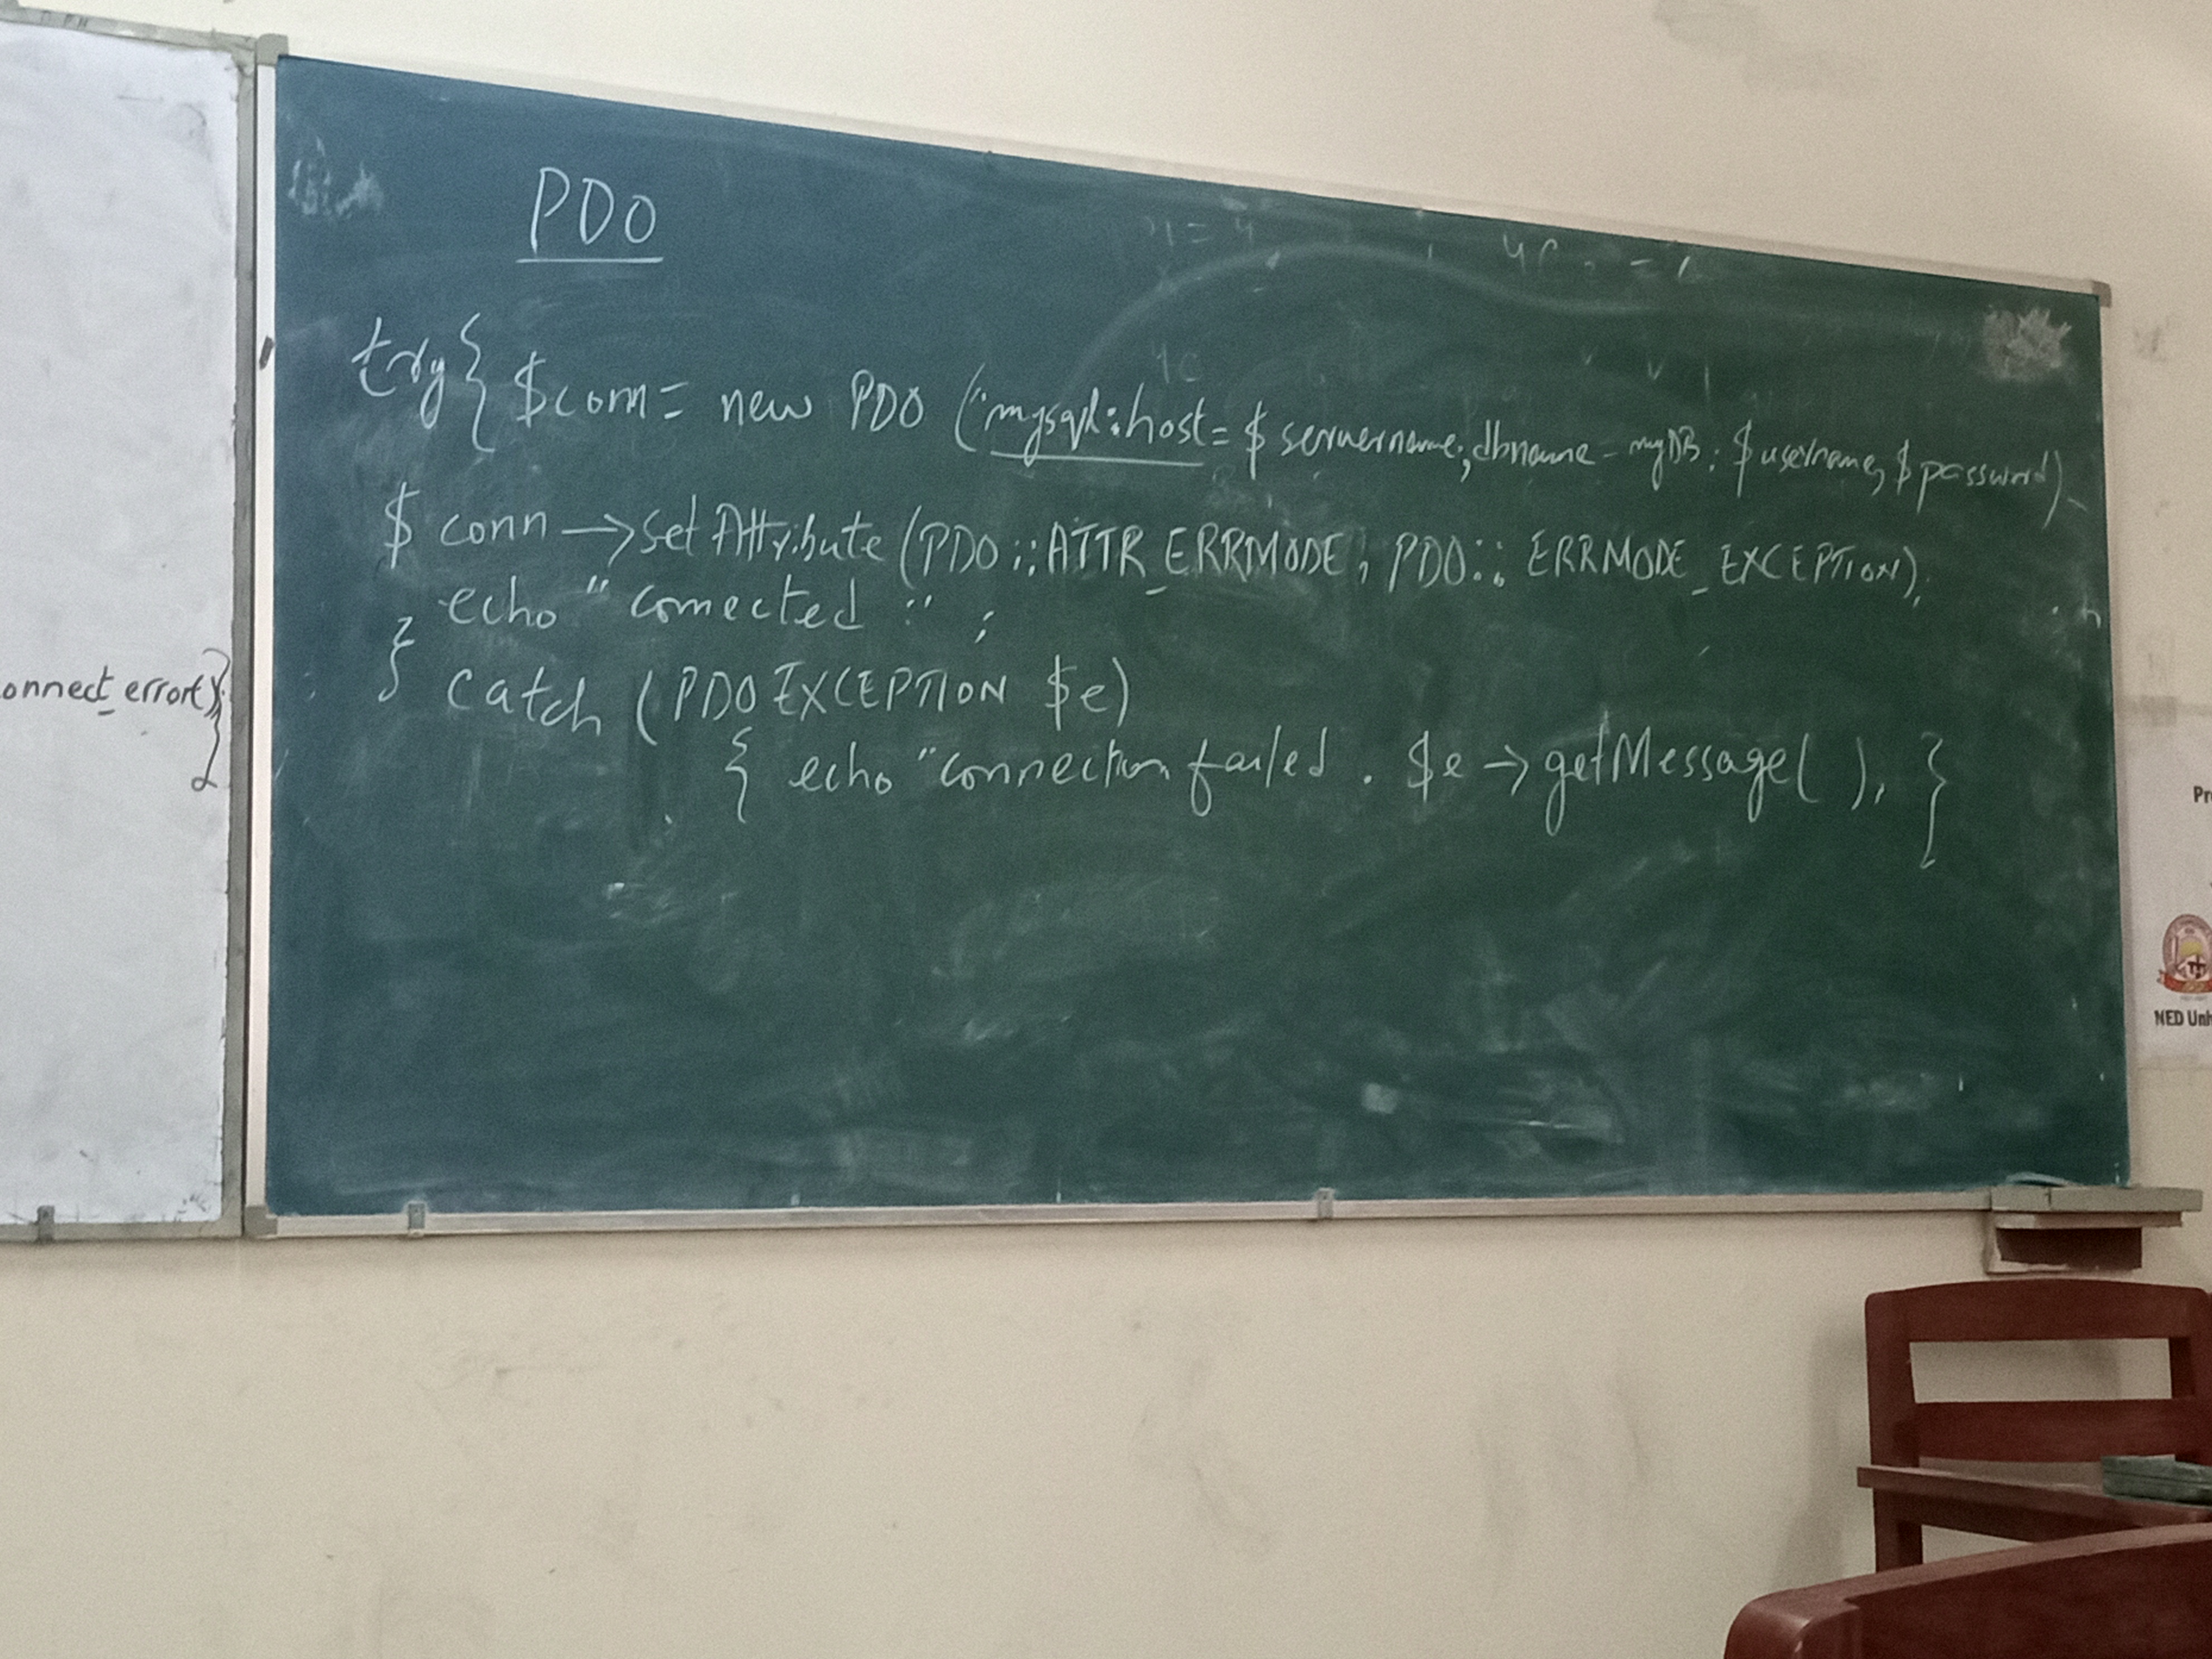 PDO
try{ $conn = new PDO ("mysql:host= $servername;dbname - myDB: $username, $password)
$ conn → set Attribute (PDO :: ATTR_ERRMODE, PDO :: ERRMODE_EXCEPTION);
echo "connected " ;
} catch (PDO EXCEPTION $e)
{ echo "connection failed . $e → getMessage( ); }
onnect_error);}
NED